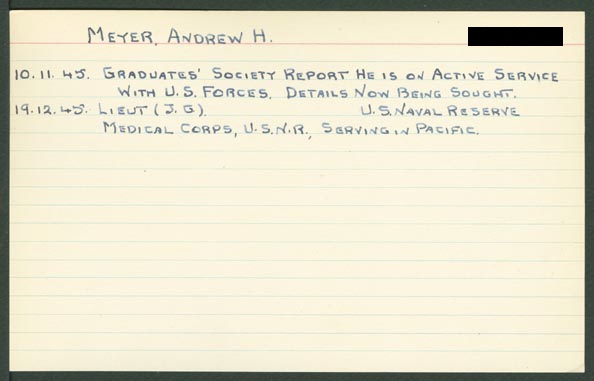 MEYER, ANDREW H.
10.11.45. GRADUATES' SOCIETY REPORT HE IS ON ACTIVE SERVICE
WITH U.S. FORCES. DETAILS NOW BEING SOUGHT.
19.12.45. LIEUT (J.G). U.S. NAVAL RESERVE
MEDICAL CORPS, U.S.N.R., SERVING IN PACIFIC.